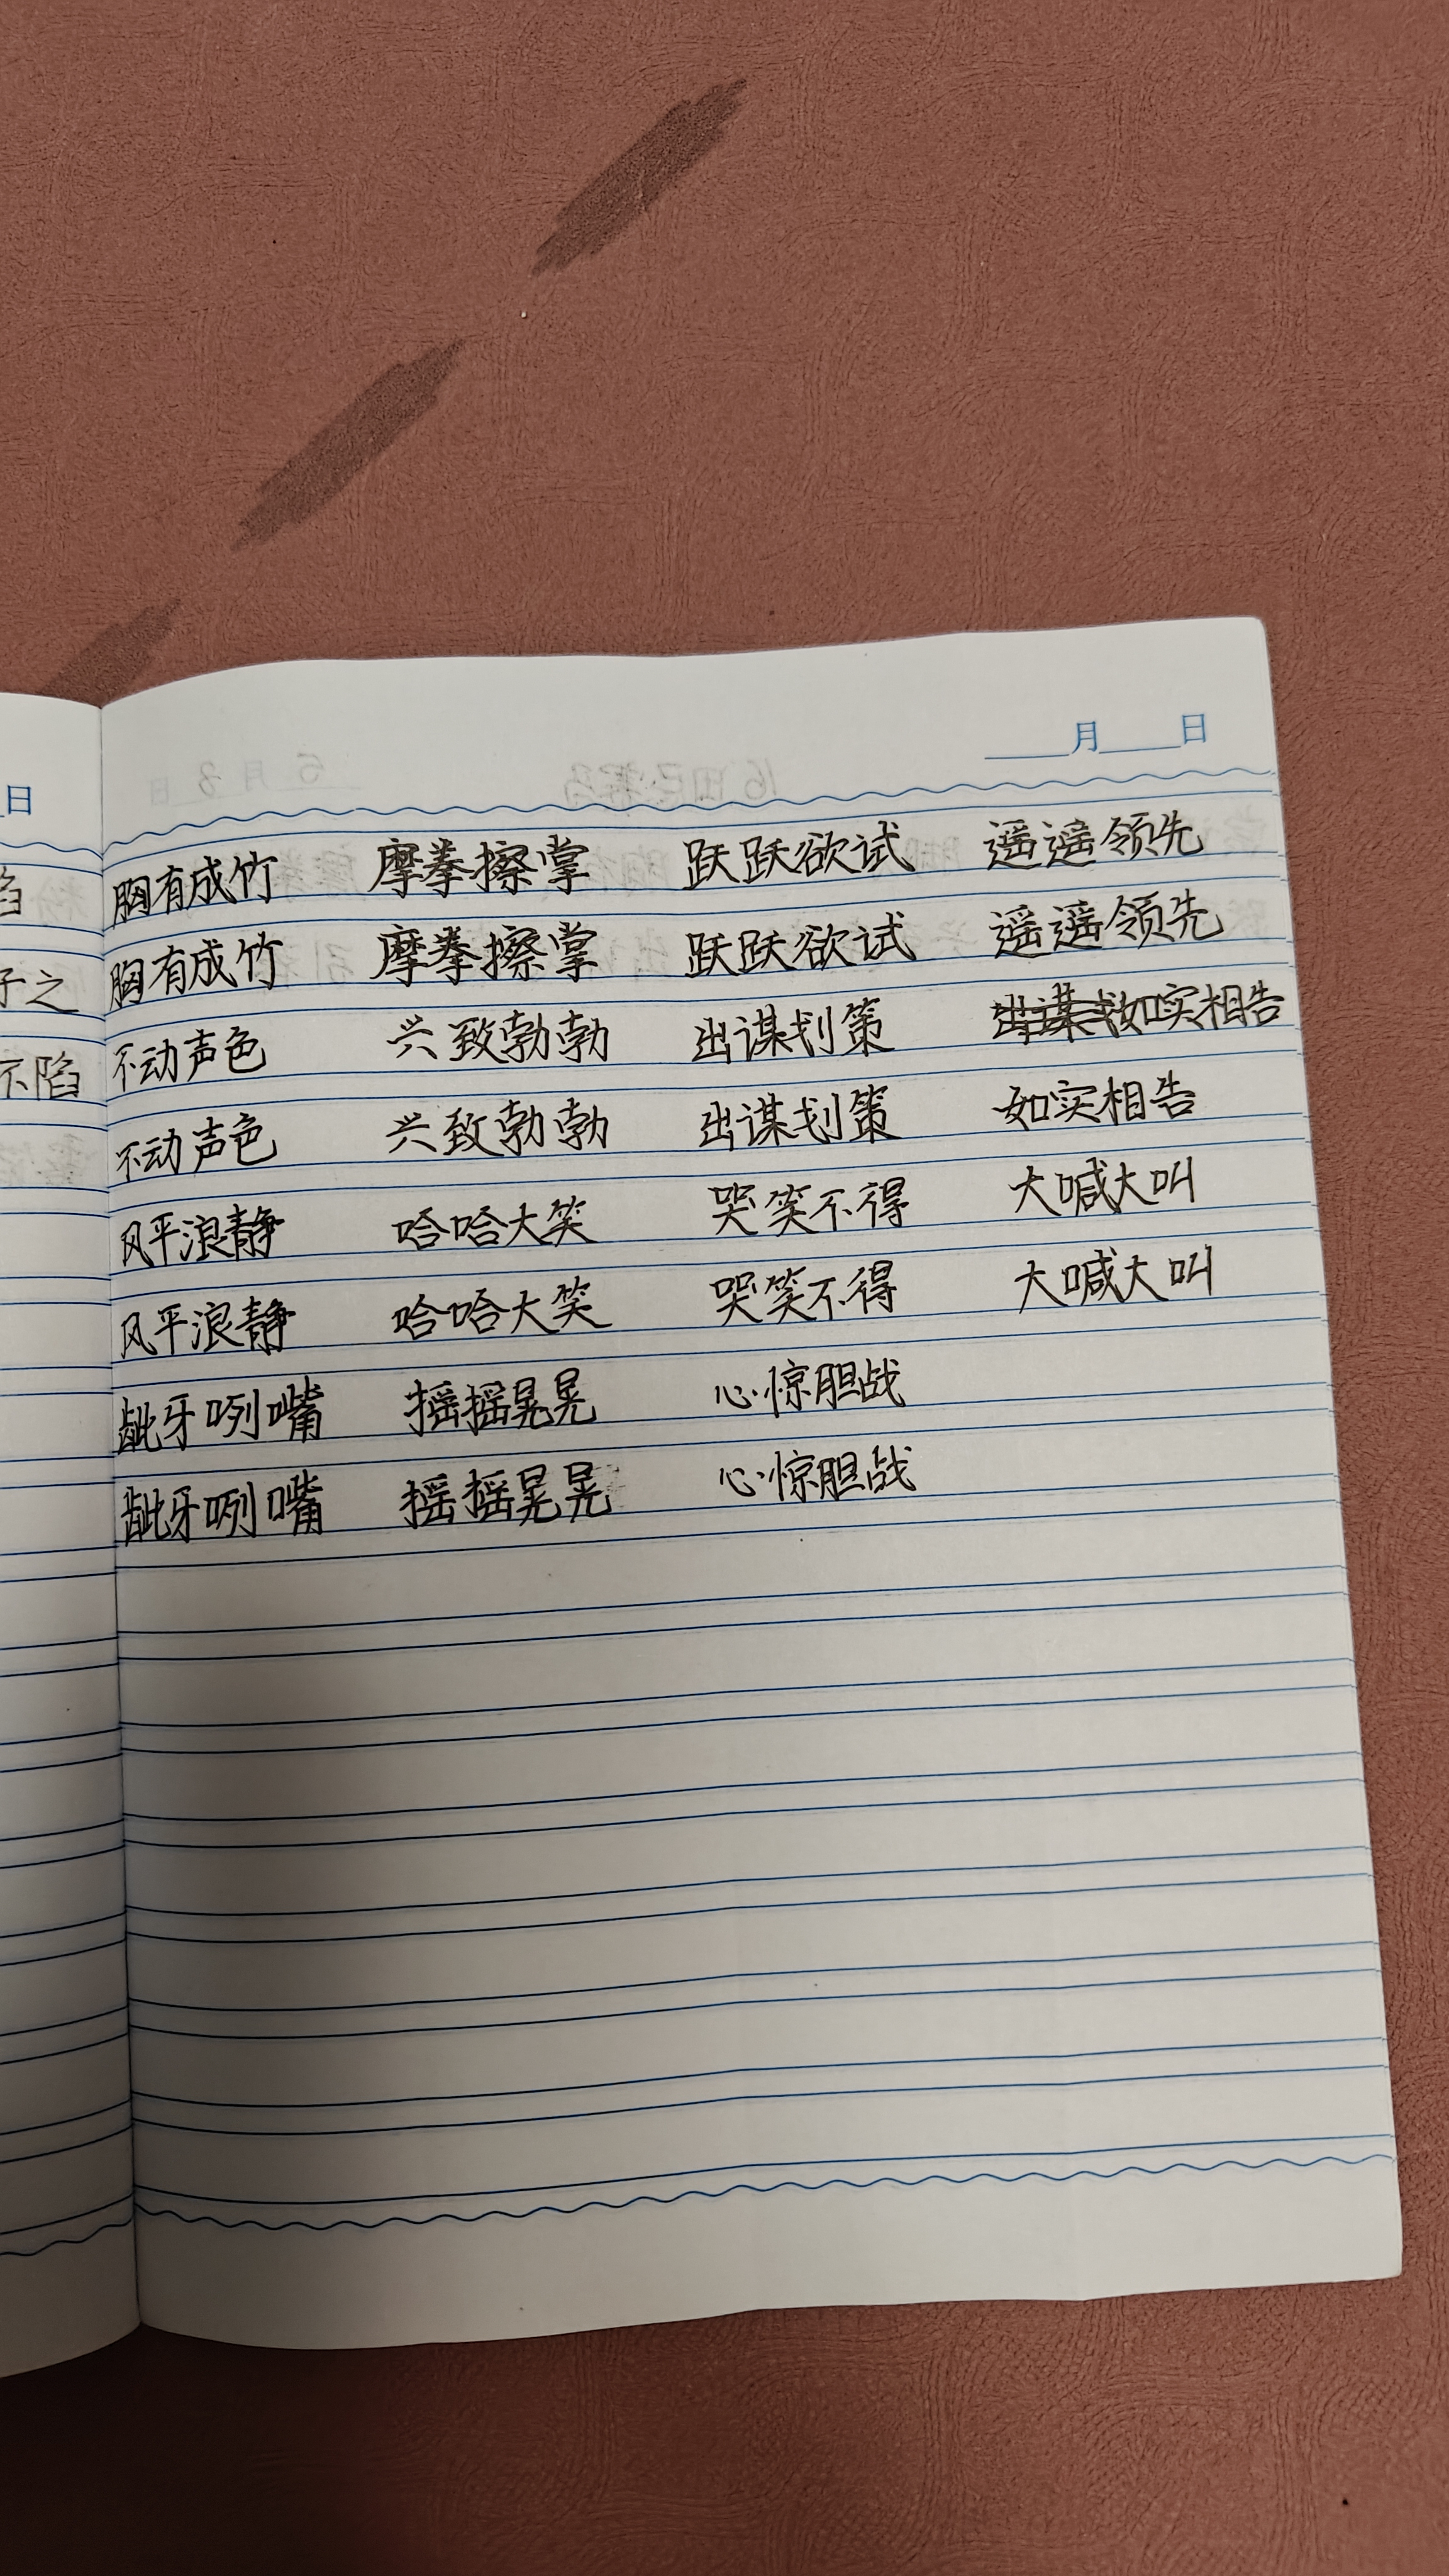 月 日
日
胸有成竹 摩拳擦掌 跃跃欲试 遥遥领先
胸有成竹 摩拳擦掌 跃跃欲试 遥遥领先
子之
不动声色 兴致勃勃 出谋划策 出谋如实相告
不陷
不动声色 兴致勃勃 出谋划策 如实相告
风平浪静 哈哈大笑 哭笑不得 大喊大叫
风平浪静 哈哈大笑 哭笑不得 大喊大叫
龇牙咧嘴 摇摇晃晃 心惊胆战
龇牙咧嘴 摇摇晃晃 心惊胆战